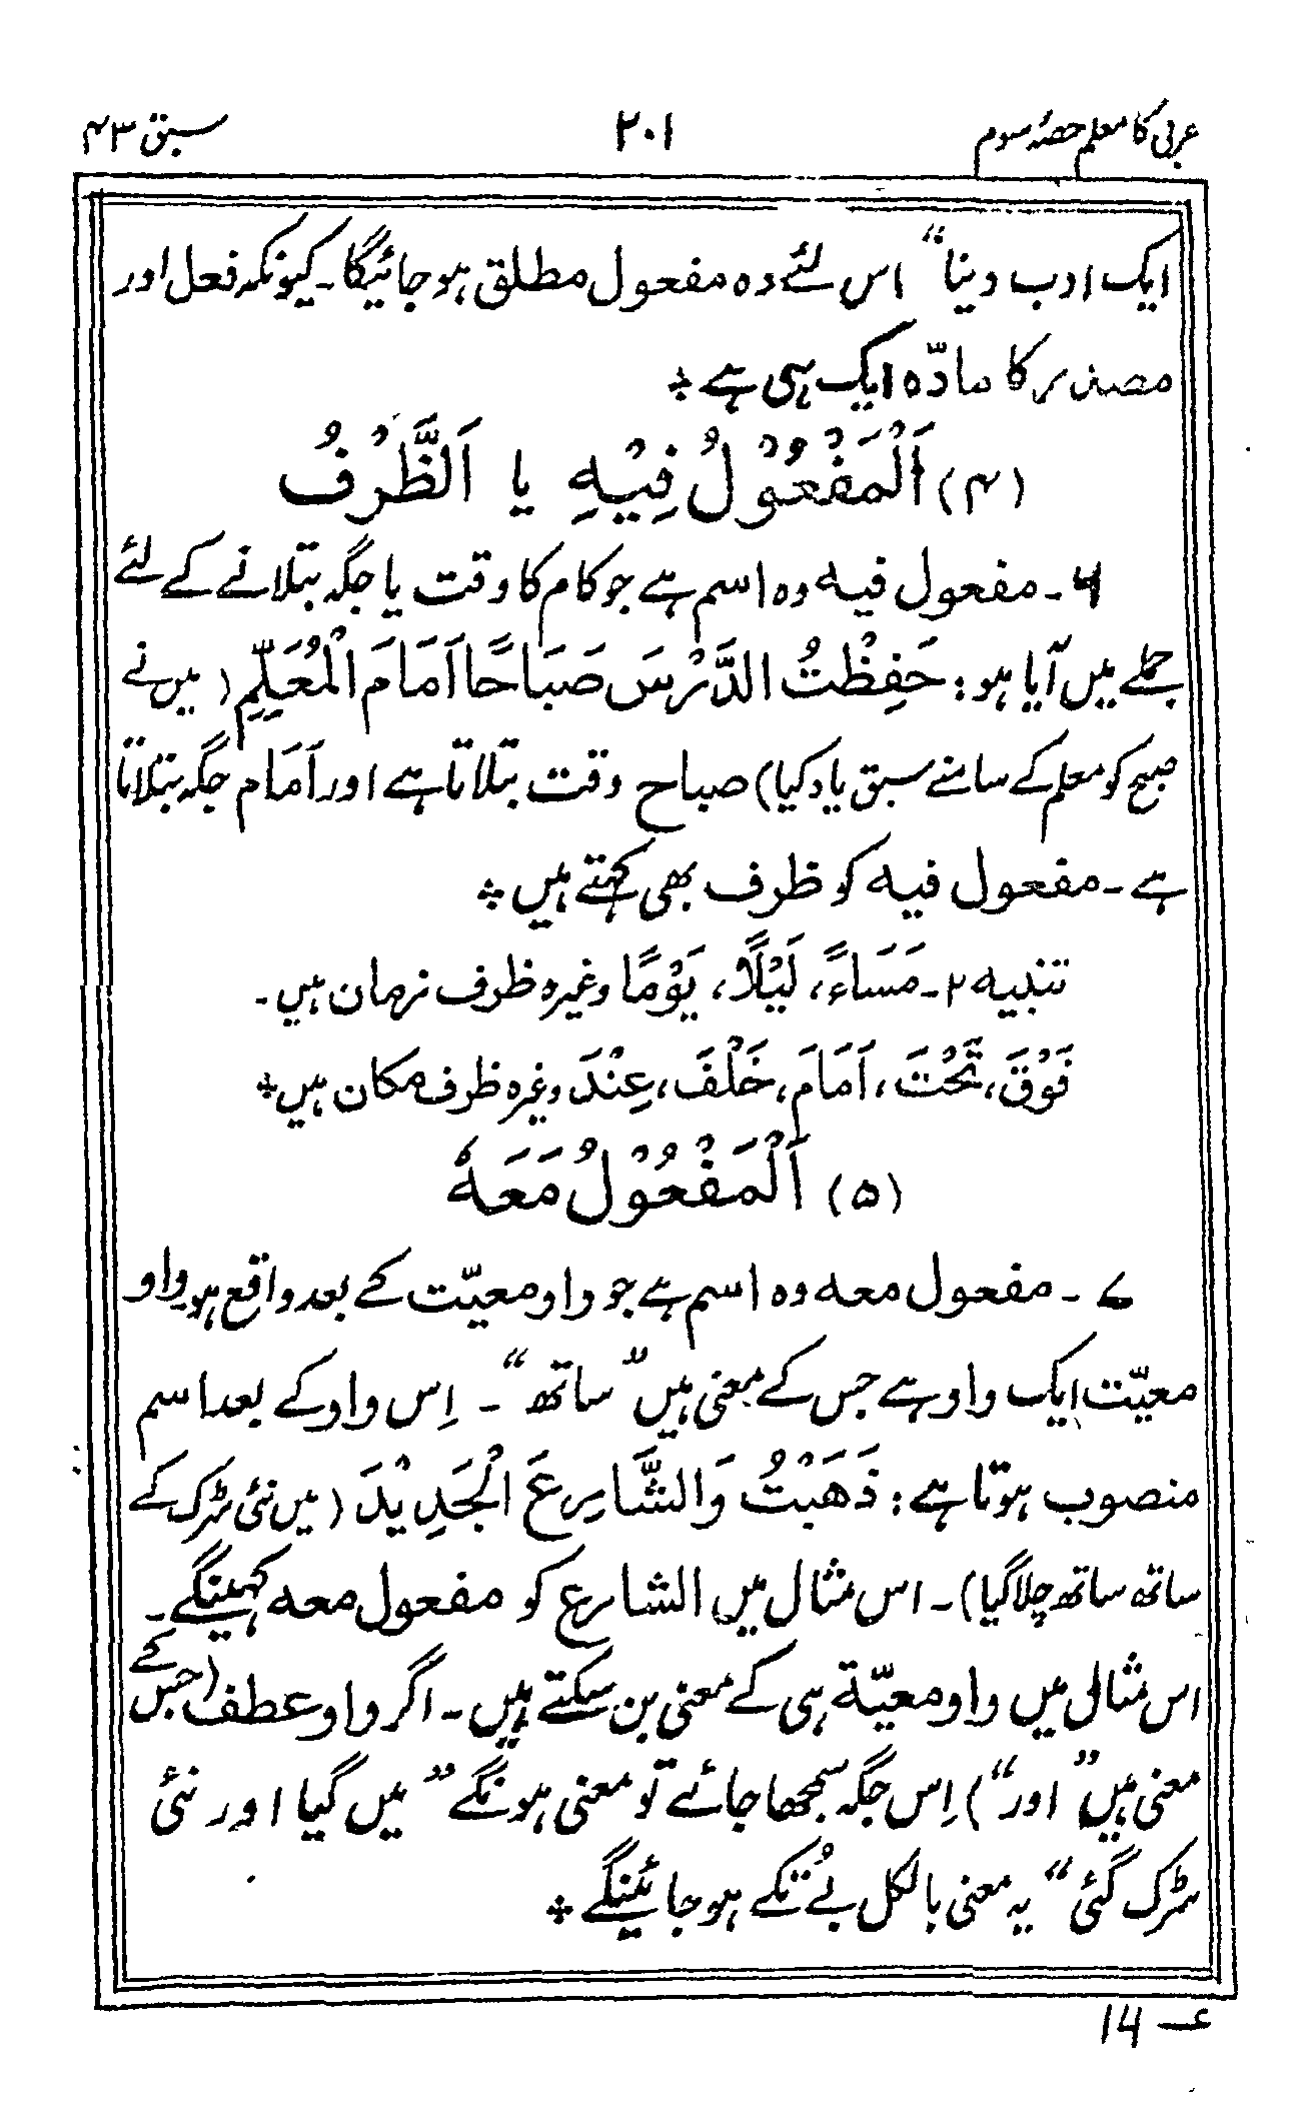 عربی کا معلم حصّہ سوم ۲۰۱ سبق ۴۳
ایک ادب دینا“ اس لئے وہ مفعول مطلق ہوجائیگا۔ کیونکہ فعل اور
مصدر کا مادّہ ایک ہی ہے ÷
(۴) اَلْمَفْعُوْلُ فِیْہِ یا اَلظَّرْفُ
۶۔ مفعول فیہ وہ اسم ہے جو کام کا وقت یا جگہ بتلانے کے لئے
جملے میں آیا ہو: حَفِظْتُ الدَّرْسَ صَبَاحًا اَمَامَ الْمُعَلِّمِ (میں نے
صبح کو معلم کے سامنے سبق یاد کیا) صباح وقت بتلاتا ہے اور اَمَام جگہ بتلاتا
ہے۔ مفعول فیہ کو ظرف بھی کہتے ہیں ÷
تنبیہ ۲۔ مَسَاءً، لَیْلًا، یَوْمًا وغیرہ ظرف زمان ہیں۔
فَوْقَ، تَحْتَ، اَمَامَ، خَلْفَ، عِنْدَ وغیرہ ظرف مکان ہیں ÷
(۵) اَلْمَفْعُوْلُ مَعَہٗ
۷۔ مفعول معہ وہ اسم ہے جو واو معیّت کے بعد واقع ہو۔ واو
معیّت ایک واو ہے جس کے معنی ہیں ”ساتھ“۔ اِس واو کے بعد اسم
منصوب ہوتا ہے: ذَھَبْتُ وَالشَّارِعَ الْجَدِیْدَ (میں نئی سڑک کے
ساتھ ساتھ چلا گیا)۔ اس مثال میں الشارع کو مفعول معہ کہینگے۔
اس مثال میں واو معیّۃ ہی کے معنی بن سکتے ہیں۔ اگر واو عطف (جس کے
معنی ہیں ”اور“) اِس جگہ سمجھا جائے تو معنی ہونگے ”میں گیا اور نئی
سڑک گئی“ یہ معنی بالکل بےتُکے ہوجائینگے ÷
عـ ۱۴